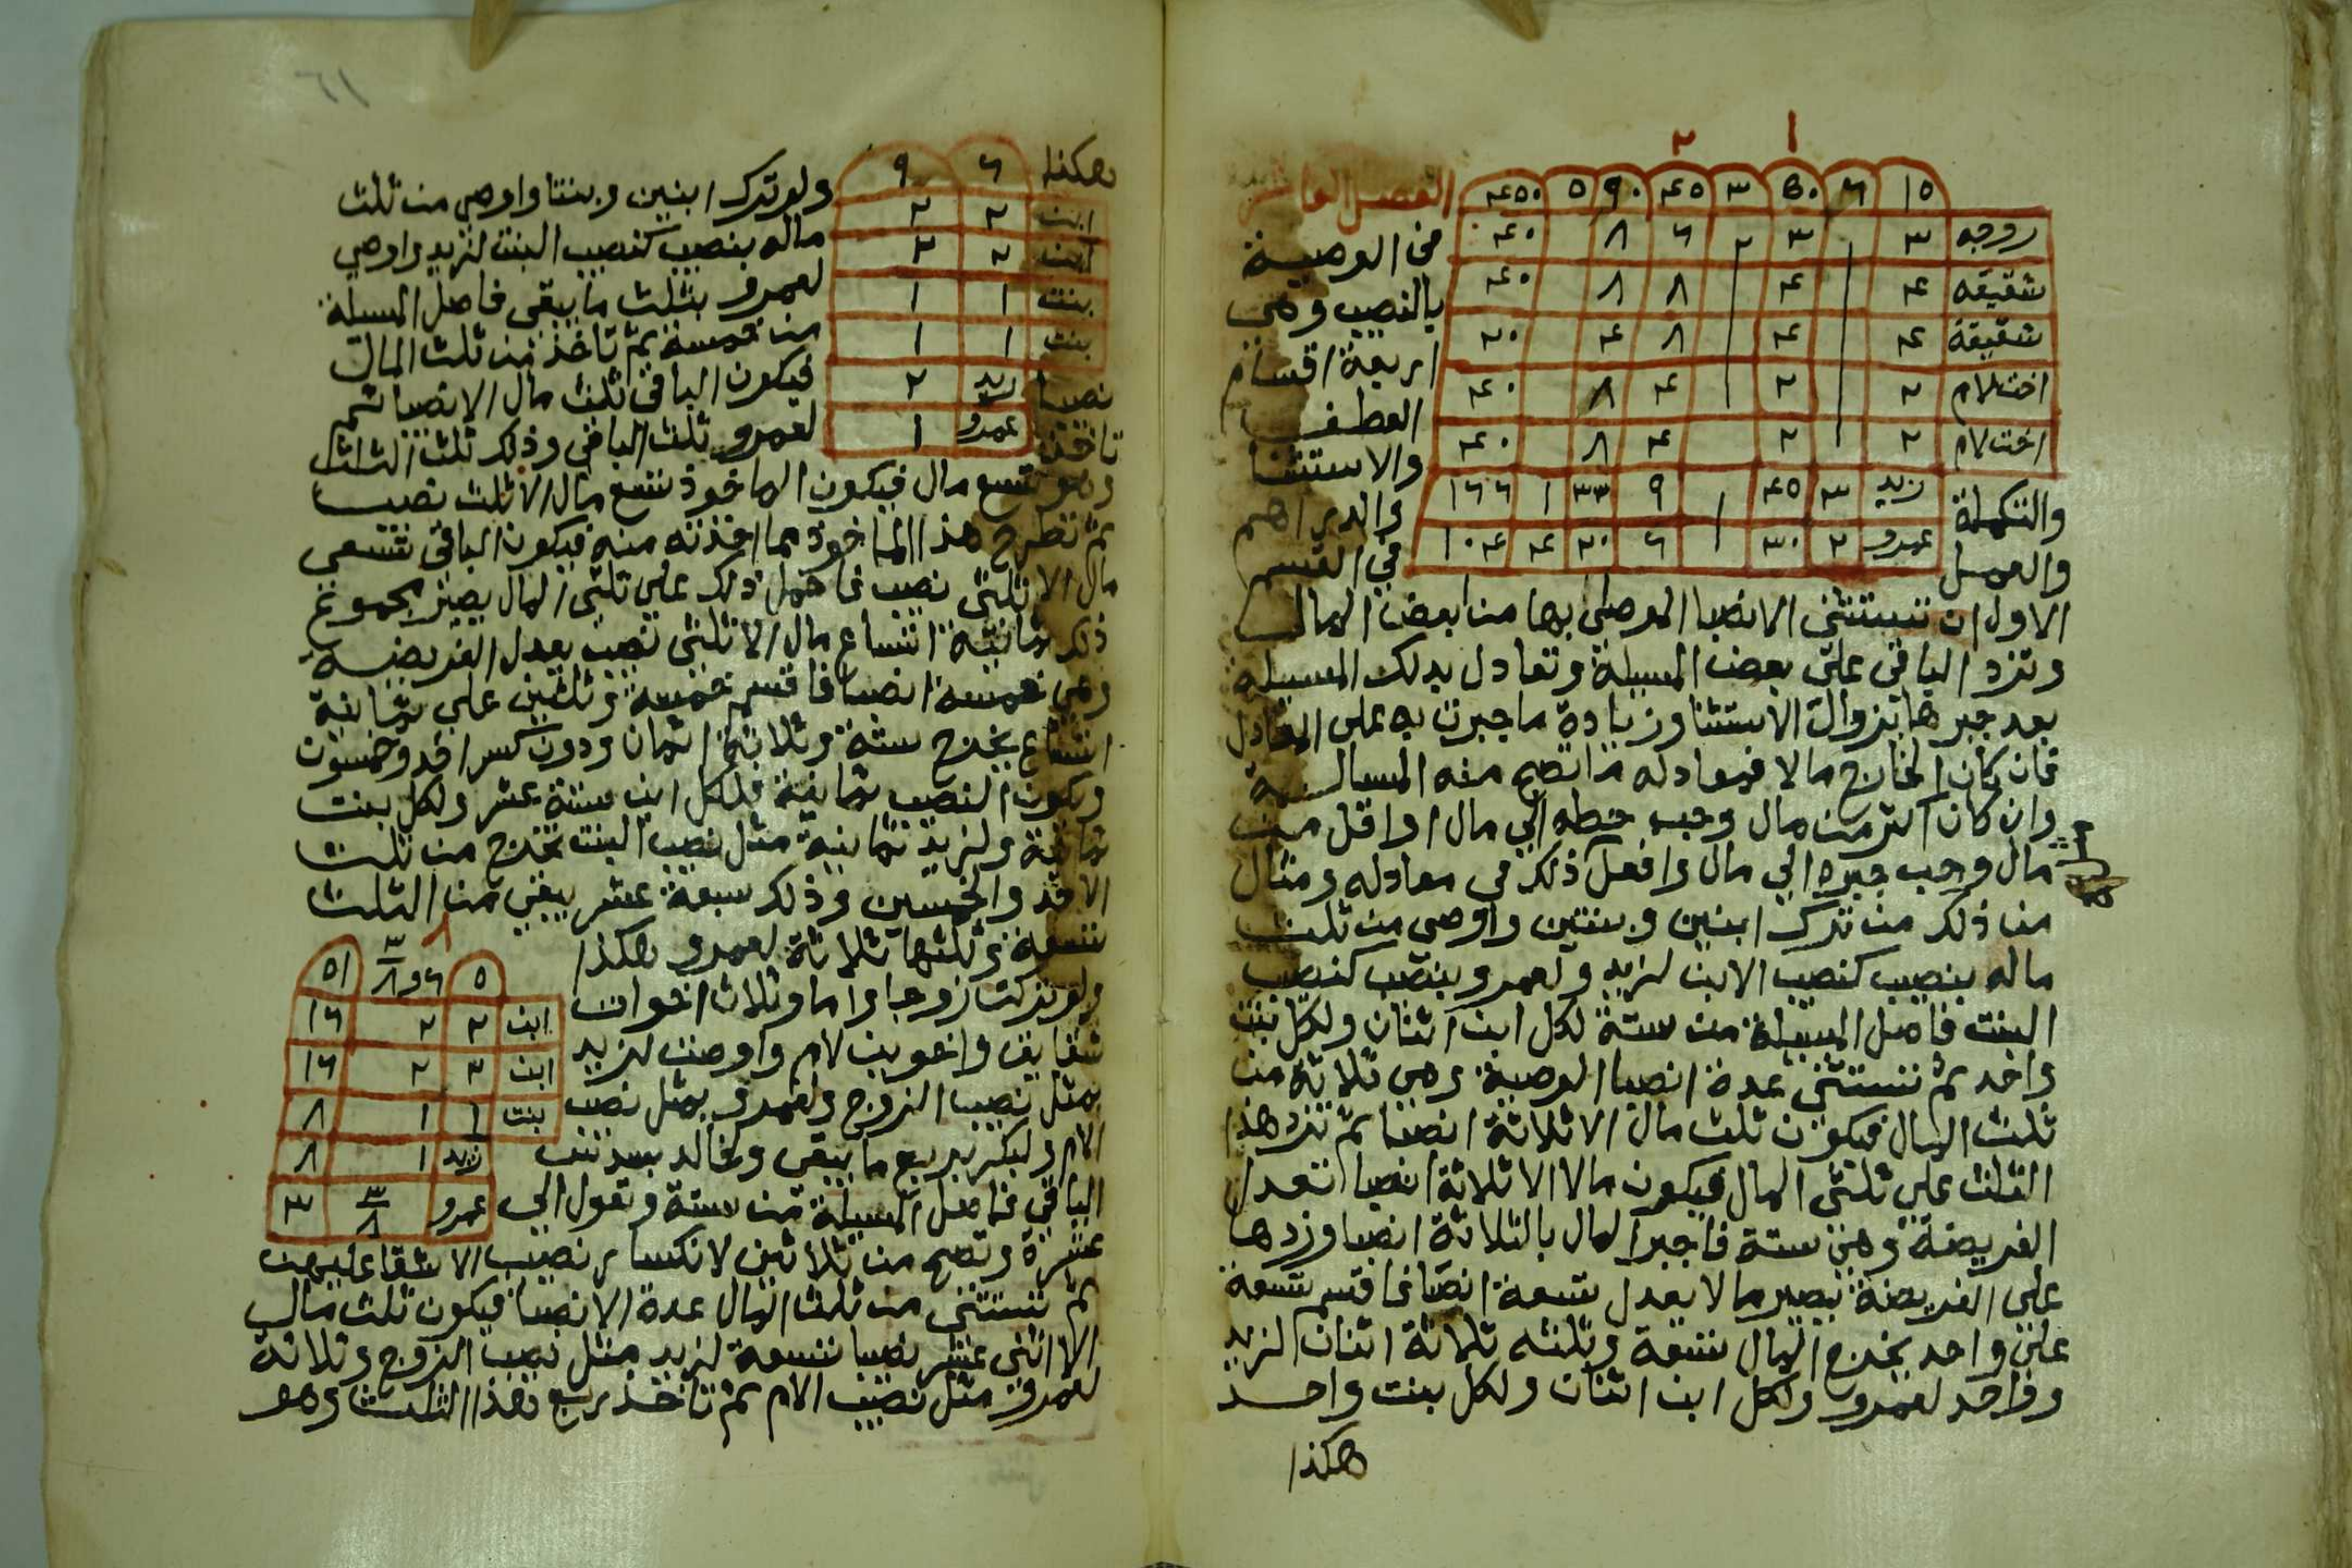 ١ ٢
١٥ ٦ ٥٠ ٣ ٤٥ ٩٠ ٥ ٤٥٠
زوجه ٣ ٣ ٢ ٦ ٨ ٤٠
شقيقه ٤ ٤ ٨ ٨ ٤٠
شقيقة ٤ ٤ ٨ ٤ ٢٠
اخت لام ٢ ٢ ٤ ٨ ٤٠
اخت لام ٢ ٢ ٤ ٨ ٤٠
زيد ٣ ٤٥ ١ ٩ ٣٣ ١ ١٦٦
عمرو ٢ ٣٠ ١ ٦ ٢٠ ٤ ١٠٤
الفصل
في الوصية
بالنصيب وهي
اربعة اقسام
العطف
والاستثنا
والتكملة والدراهم
والعمل في القسم
الاول ان تستثني الانصبا الموصى بها من بعض المال
وتزد الباقي على بعض المسيلة وتعادل بذلك المسيلة
بعد جبرها بزوال الاستثنا وزيادة ما جبرت به على المعادل
فان كان الخارج مالا فمعادله ما تصح منه المسالة
وان كان اكثر من مال وجب حطه الي مال او اقل من
مال وجب جبره الي مال وافعل ذلك في معادله ومثال
من ذلك من ترك ابنين وبنتين واوصى من ثلث
ماله بنصيب كنصيب الابن لزيد ولعمرو بنصيب كنصيب
البنت فاصل المسيلة من ستة لكل ابن اثنان ولكل بنت
واحد ثم تستثني عدة انصبا الوصية وهي ثلاثة من
ثلث المال فيكون ثلث مال الا ثلاثة انصبا ثم تزد هذا
الثلث علي ثلثي المال فيكون مالا الا ثلاثة انصبا تعدل
الفريضة وهي ستة فاجبر المال بالثلاثة انصبا وزدها
على الفريضة يصير مالا يعدل تسعة انصبا فاقسم تسعة
على واحد يخرج المال تسعة وثلثه ثلاثة اثنان لزيد
وواحد لعمرو ولكل ابن اثنان ولكل بنت واحد
هكذا
هكذا
٦ ٩
ابن ٢ ٢
ابن ٢ ٢
بنت ١ ١
بنت ١ ١
زيد ٢
عمرو ١
ولو ترك ابنين وبنتا واوصى من ثلث
ماله بنصيب كنصيب البنت لزيد واوصى
لعمرو بثلث ما يبقى فاصل المسيلة
من خمسة ثم تاخذ من ثلث المال
نصيبا فيكون الباقي ثلث مال الا نصيبا ثم
تاخذ لعمرو ثلث الباقي وذلك ثلث الثلث
وهو تسع مال فيكون الماخوذ تسع مال الا ثلث نصيب
ثم تطرح هذا الماخوذ مما اخذته منه فيكون الباقي تسعي
مال الا ثلثي نصيب فاحمل ذلك على ثلثي المال يصير مجموع
ذلك ثمانية اتساع مال الا ثلثي نصيب يعدل الفريضة
وهي خمسة انصبا فاقسم خمسة وثلثين علي ثمانية
اتساع يخرج ستة وثلاثة اثمان ودون كسر احد وخمسون
ويكون النصيب ثمانية فلكل ابن ستة عشر ولكل بنت
ثمانية ولزيد ثمانية مثل نصيب البنت تخرج من ثلث
الاحد والخمسين وذلك سبعة عشر يبقي من الثلث
تسعة وثلثها ثلاثة لعمرو هكذا
٨
٥ ٦ و ٣/٨ ٥١
ابن ٢ ٢ ١٦
ابن ٢ ٢ ١٦
بنت ١ ١ ٨
زيد ١ ٨
عمرو ٣/٨ ٣
ولو تركت زوجا واما وثلاث اخوات
شقايق واخوين لام واوصت لزيد
بمثل نصيب الزوج ولعمرو بمثل نصيب
الام ولبكر بربع ما يبقى ولخالد بسدس
الباقي فاصل المسيلة من ستة وتعول الي
عشرة وتصح من ثلاثين لانكسار نصيب الاشقا عليهن
ثم تستثني من ثلث المال عدة الانصبا فيكون ثلث مال
الا اثني عشر نصيبا تسعة لزيد مثل نصيب الزوج وثلاثة
لعمرو مثل نصيب الام ثم تاخذ ربع هذا الثلث وهو